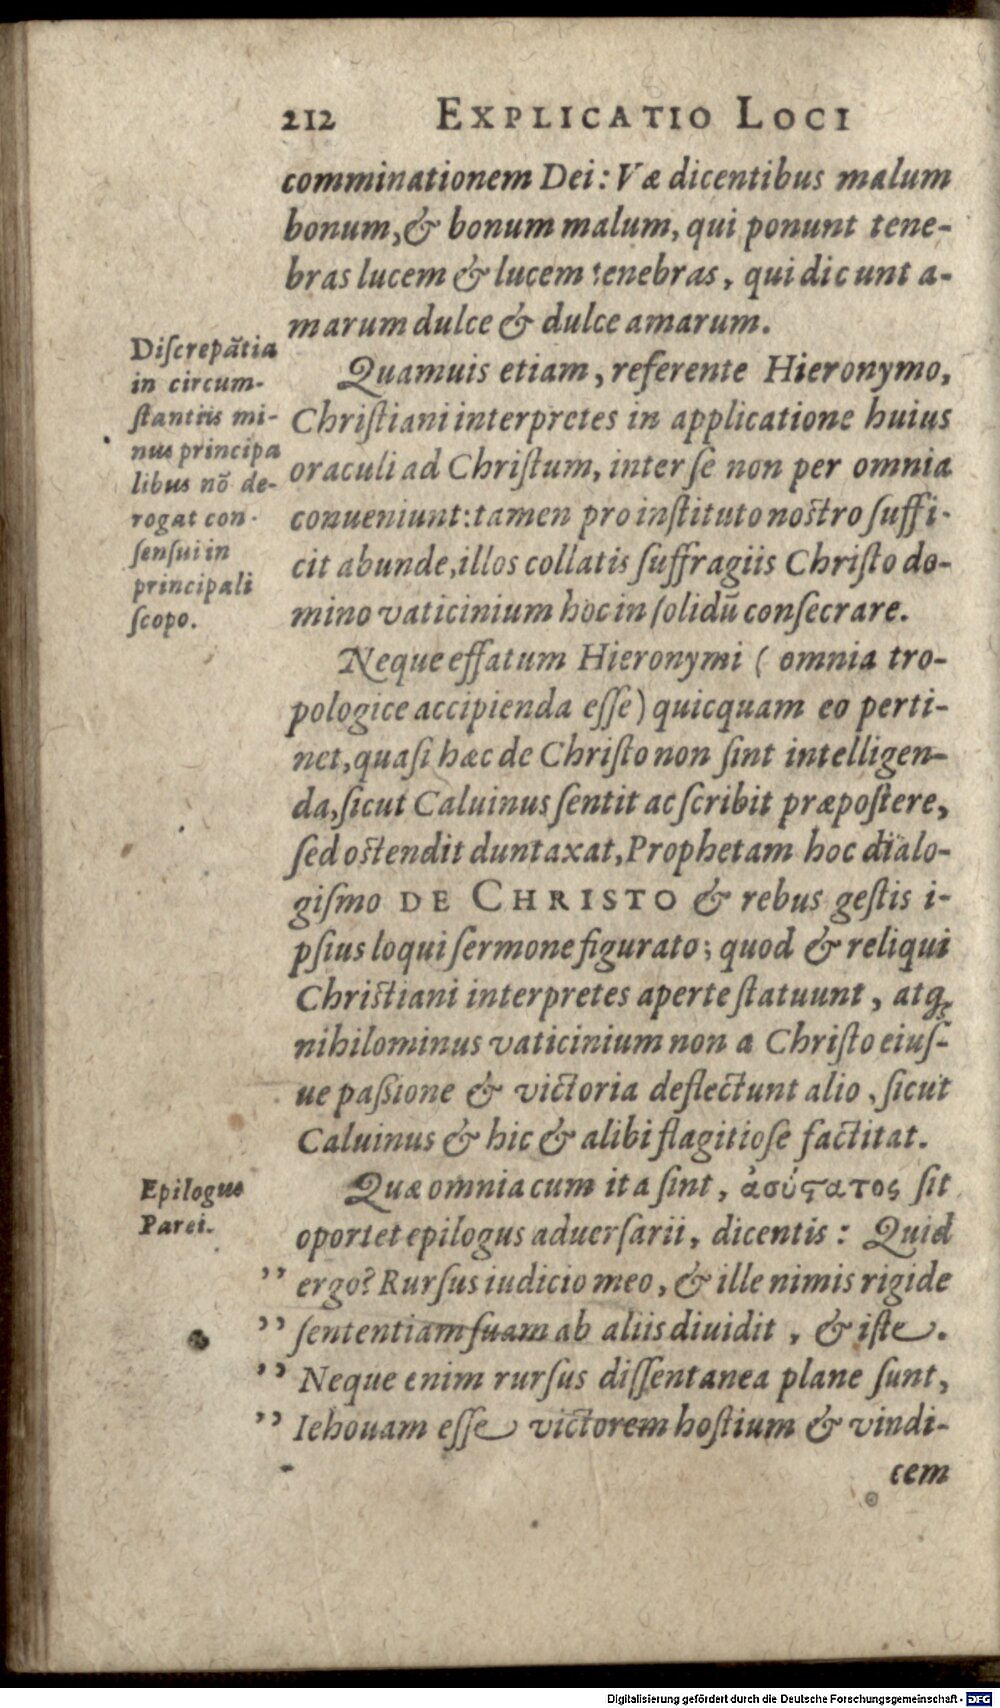 212 EXPLICATIO LOCI
comminationem Dei: Væ dicentibus malum
bonum, & bonum malum, qui ponunt tene-
bras lucem & lucem tenebras, qui dicunt a-
marum dulce & dulce amarum.
Discrepãtia
in circum-
stantiis mi-
nus principa
libus nõ de-
rogat con-
sensui in
principali
scopo.
Quamuis etiam, referente Hieronymo,
Christiani interpretes in applicatione huius
oraculi ad Christum, inter se non per omnia
conueniunt: tamen pro instituto nostro suffi-
cit abunde, illos collatis suffragiis Christo do-
mino vaticinium hoc in solidũ consecrare.
Neque effatum Hieronymi ( omnia tro-
pologice accipienda esse) quicquam eo perti-
net, quasi hæc de Christo non sint intelligen-
da, sicut Caluinus sentit ac scribit præpostere,
sed ostendit duntaxat, Prophetam hoc dialo-
gismo DE CHRISTO & rebus gestis i-
psius loqui sermone figurato; quod & reliqui
Christiani interpretes aperte statuunt, atq;
nihilominus vaticinium non a Christo eius-
ue passione & victoria deflectunt alio, sicut
Caluinus & hic & alibi flagitiose factitat.
Epilogus
Parei.
Quæ omnia cum ita sint, ἀσύστατος sit
oportet epilogus aduersarii, dicentis: Quid
" ergo? Rursus iudicio meo, & ille nimis rigide
" sententiam suam ab aliis diuidit, & iste.
" Neque enim rursus dissentanea plane sunt,
" Iehouam esse victorem hostium & vindi-
cem
Digitalisierung gefördert durch die Deutsche Forschungsgemeinschaft - DFG